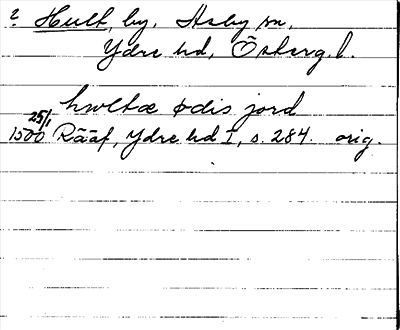 ? Hult, by, Asby sn,
Ydre hd, Österg. l.
hwltæ ødis jord
25/1
1500 Rääf, Ydre hd I, s. 284. orig.